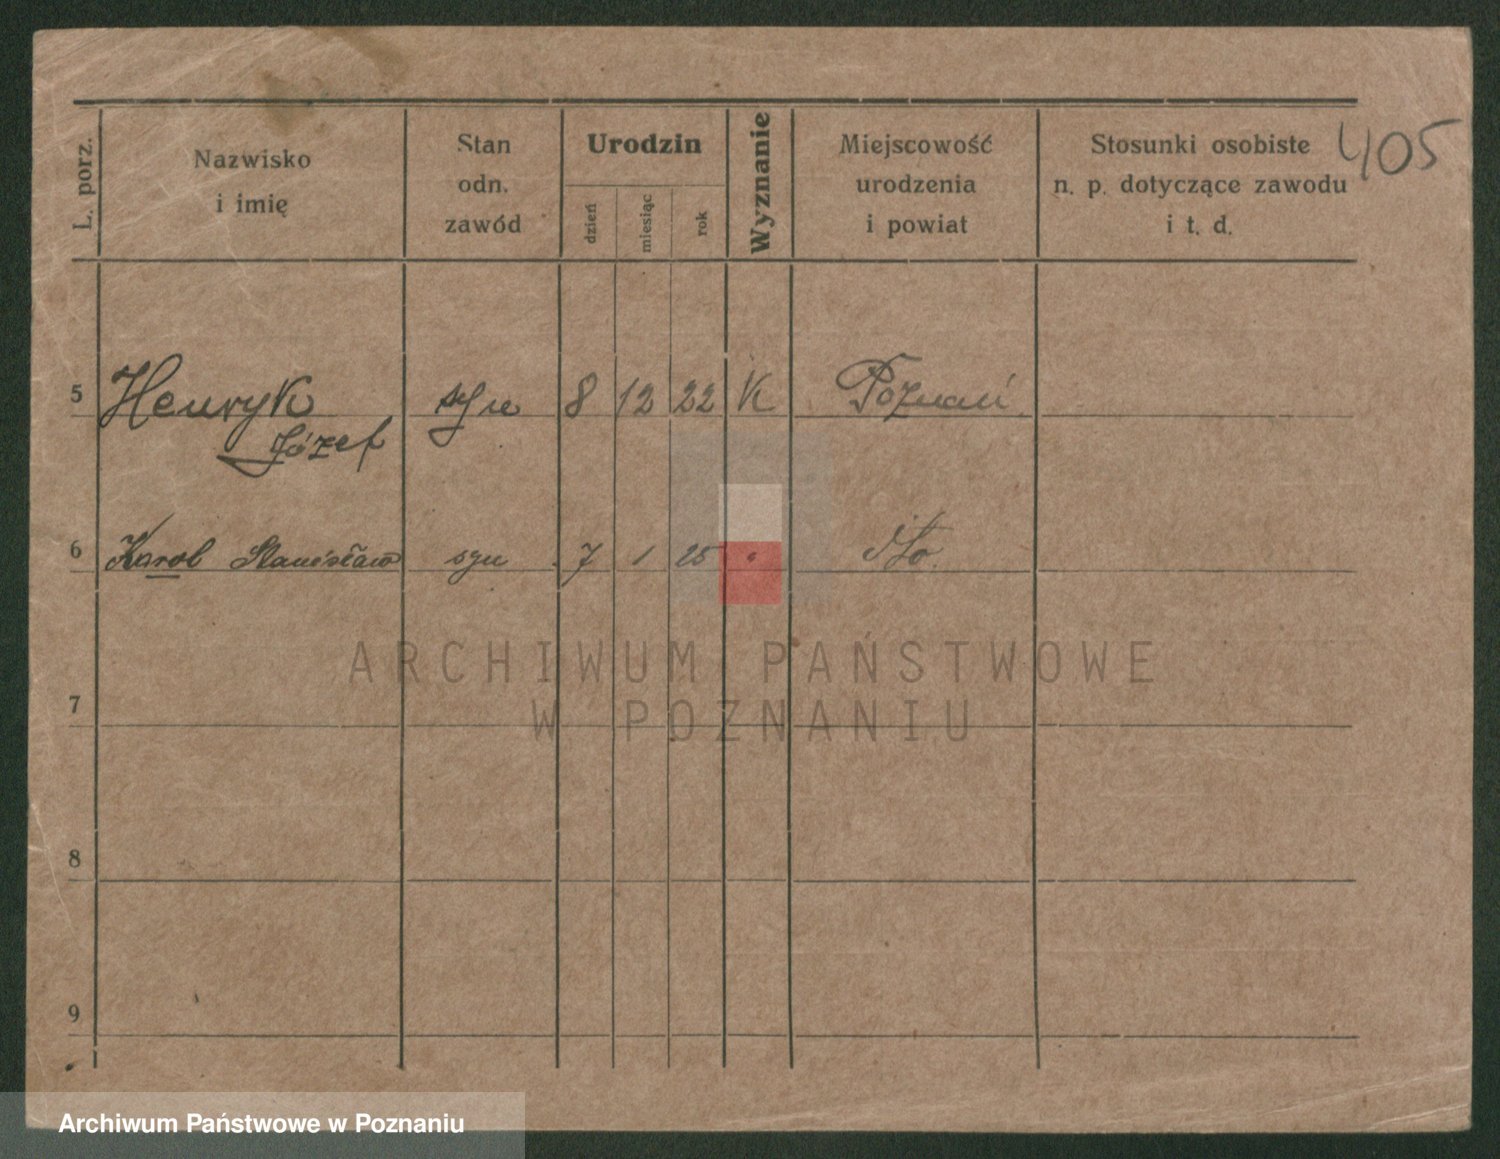 405
L. porz.
Nazwisko
i imię
Stan
odn.
zawód
Urodzin
dzień
miesiąc
rok
Wyznanie
Miejscowość
urodzenia
i powiat
Stosunki osobiste
n. p. dotyczące zawodu
i t. d.
5 Henryk syn 8 12 22 K Poznań
Józef
6 Karol Stanisław syn 7 1 25 "
7
8
9
ARCHIWUM PAŃSTWOWE
W POZNANIU
Archiwum Państwowe w Poznaniu